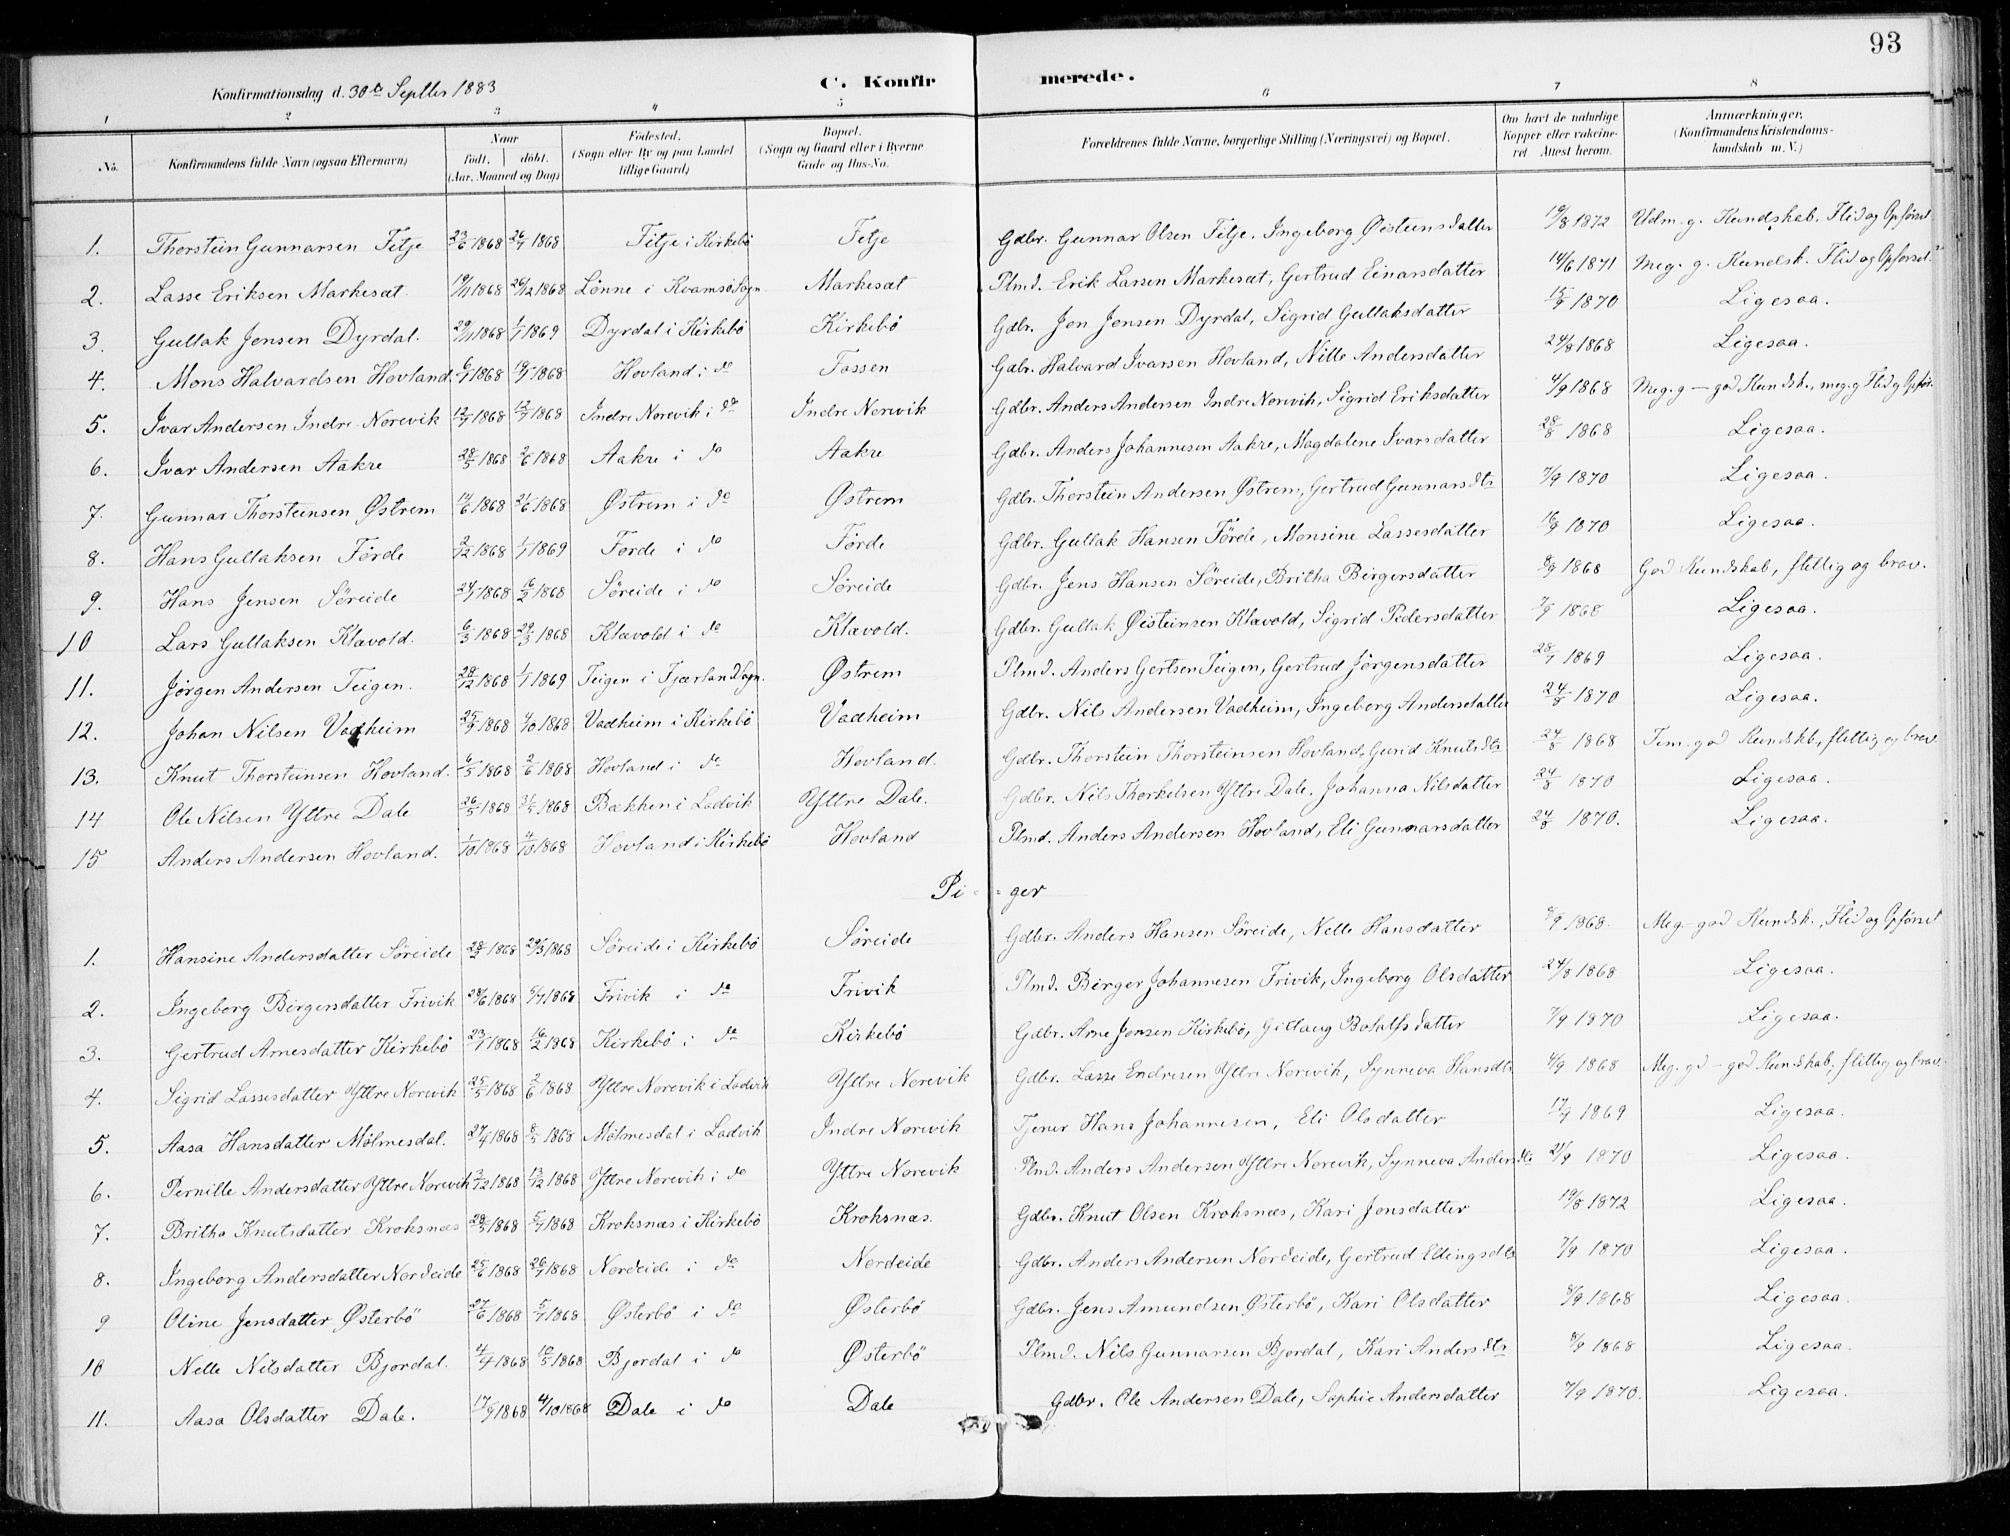 93
Konfirmationsdag d. 30te Septber 1883 C. Konfirmerede.
1 2 3 4 5 6 7 8
No. Konfirmandens fulde Navn (ogsaa Efternavn) Naar født. døbt. (Aar, Maaned og Dag) Fødested. (Sogn eller By og paa Landet tillige Gaard) Bopæl. (Sogn og Gaard eller i Byerne Gade og Hus-No. Forældrenes fulde Navne, borgerlige Stilling (Næringsvei) og Bopæl. Om havt de naturlige Kopper eller vakcineret Attest herom. Anmærkninger. (Konfirmandens Kristendomskundskab m. V.)
1. Thorstein Gunnarsen Fitje 23/6 1868 26/7 1868 Fitje i Kirkebö Fitje Gdbr. Gunnar Olsen Fitje. Ingeborg Øisteinsdatter 19/8 1872 Udm. g. Kundskab. Flid og Opførsel
2. Lasse Eriksen Markesæt. 19/11 1868 26/12 1868 Lønne i Kvamsö Sogn. Markesæt Plmd. Erik Larsen Markesæt, Gertrud Einarsdatter 14/6 1871 Meg. g. Kundsk. Flid og Opførsel
3. Gullak Jensen Dyrdal. 29/11 1868 1/1 1869 Dyrdal i Kirkebö Kirkebö Gdbr. Jon Jensen Dyrdal, Sigrid Gullaksdatter 15/9 1870 Ligesaa.
4. Mons Halvardsen Hovland. 6/7 1868 19/7 1868 Hovland i do Fossen Gdbr. Halvard Ivarsen Hovland, Nille Andersdatter 24/8 1868 Ligesaa.
5. Ivar Andersen Indre Norevik 12/7 1868 12/7 1868 Indre Norevik i do Indre Norevik Gdbr. Anders Andersen Indre Norevik, Sigrid Eriksdatter 4/9 1868 Meg. g – god Kundsk., meg. g Flid og Opfør.
6. Ivar Andersen Aakre 28/5 1868 2/6 1868 Aakre i do Aakre Gdbr. Anders Johannesen Aakre, Magdalene Ivarsdatter 28/8 1868 Ligesaa.
7. Gunnar Thorsteinsen Østrem 14/6 1868 21/6 1868 Østrem i do Østrem Gdbr. Thorstein Andersen Østrem, Gertrud Gunnarsdtr 7/9 1870 Ligesaa.
8. Hans Gullaksen Førde 2/12 1868 1/1 1869 Førde i do Førde Gdbr. Gullak Hansen Förde, Monsine Lassesdatter 16/9 1870 Ligesaa.
9. Hans Jensen Söreide 24/1 1868 16/2 1868 Söreide i do Søreide Gdbr. Jens Hansen Söreide, Britha Birgersdatter 8/9 1868 God Kundskab, flittig og brav.
10 Lars Gullaksen Klævold. 6/3 1868 29/3 1868 Klævold i do Klævold. Gdbr. Gullak Øisteinsen Klævold, Sigrid Pedersdatter 7/9 1868 Ligesaa.
11. Jørgen Andersen Teigen. 28/12 1868 1/1 1869 Teigen i Fjærland Sogn. Østrem Plmd. Anders Gertsen Teigen, Gertrud Jørgensdatter 28/7 1869 Ligesaa.
12. Johan Nilsen Vadheim 25/9 1868 4/10 1868 Vadheim i Kirkebö Vadheim Gdbr. Nils Andersen Vadheim, Ingeborg Andersdatter 24/8 1870 Ligesaa.
13. Knut Thorsteinsen Hovland. 6/5 1868 2/6 1868 Hovland i do Hovland. Gdbr. Thorstein Thorsteinsen Hovland, Gurid Knutsdtr 24/8 1868 Tem. god Kundskb, flittig og brav
14 Ole Nilsen Yttre Dale 26/5 1868 31/5 1868 Bækken i Ladvik Yttre Dale. Gdbr. Nils Thorkelsen Yttre Dale. Johanna Nilsdatter 24/8 1870 Ligesaa.
15 Anders Andersen Hovland. 1/10 1868 4/10 1868 Hovland i Kirkebö Hovland Plmd. Anders Andersen Hovland, Eli Gunnarsdatter 24/8 1870. Ligesaa.
Pi-ger
1. Hansine Andersdatter Søreide 28/2 1868 29/3 1868 Søreide i Kirkebö Søreide Gdbr. Anders Hansen Søreide, Nelle Hansdatter 8/9 1868. Meg. god Kundsk., Flid og Opførsel
2. Ingeborg Birgersdatter Frivik 28/6 1868 5/7 1868 Frivik i do Frivik Plmd. Birger Johannesen Frivik, Ingeborg Olsdatter 24/8 1868 Ligesaa.
3. Gertrud Arnesdatter Kirkebö 23/1 1868 16/2 1868 Kirkebö i do Kirkebö Gdbr. Arne Jensen Kirkebö, Gillaug Botolfsdatter 7/9 1870 Ligesaa.
4. Sigrid Lassesdatter Yttre Norevik 25/5 1868 2/6 1868 Yttre Norevik i Ladvik Yttre Norevik Gdbr. Lasse Endresen Yttre Norevik, Synneva Hansdtr 4/9 1868 Meg. gd – god Kundskab, flittig og brav.
5. Aasa Hansdatter Mölmesdal. 27/4 1868 8/5 1868 Mölmesdal i Ladvik Indre Norevik Tjener Hans Johannesen, Eli Olsdatter 17/9 1869 Ligesaa.
6. Pernille Andersdatter Yttre Norevik 3/12 1868 13/12 1868 Yttre Norevik i do Yttre Norevik Plmd. Anders Andersen Yttre Norevik, Synneva Andersdtr 21/9 1870 Ligesaa.
7. Britha Knutsdatter Kroksnæs 28/5 1868 5/7 1868 Kroksnæs i Kirkebö Kroksnæs. Gdbr. Knut Olsen Kroksnæs, Kari Jonsdatter 19/8 1872 Ligesaa.
8. Ingeborg Andersdatter Nordeide 25/6 1868 26/7 1868 Nordeide i do Nordeide Gdbr. Anders Andersen Nordeide, Gertrud Ellingsdtr 7/9 1870 Ligesaa.
9 Oline Jensdatter Østerbö 27/6 1868 5/7 1868 Østerbö i do Østerbö Gdbr. Jens Amundsen Østerbö, Kari Olsdatter 8/9 1868 Ligesaa.
10 Nelle Nilsdatter Bjordal. 4/4 1868 10/5 1868 Bjordal i do Østerbö Plmd. Nils Gunnarsen Bjordal, Kari Andersdtr 8/9 1868 Ligesaa.
11. Aasa Olsdatter Dale. 17/9 1868 4/10 1868 Dale i do Dale Gdbr. Ole Andersen Dale, Sophie Andersdatter 7/9 1870. Ligesaa.